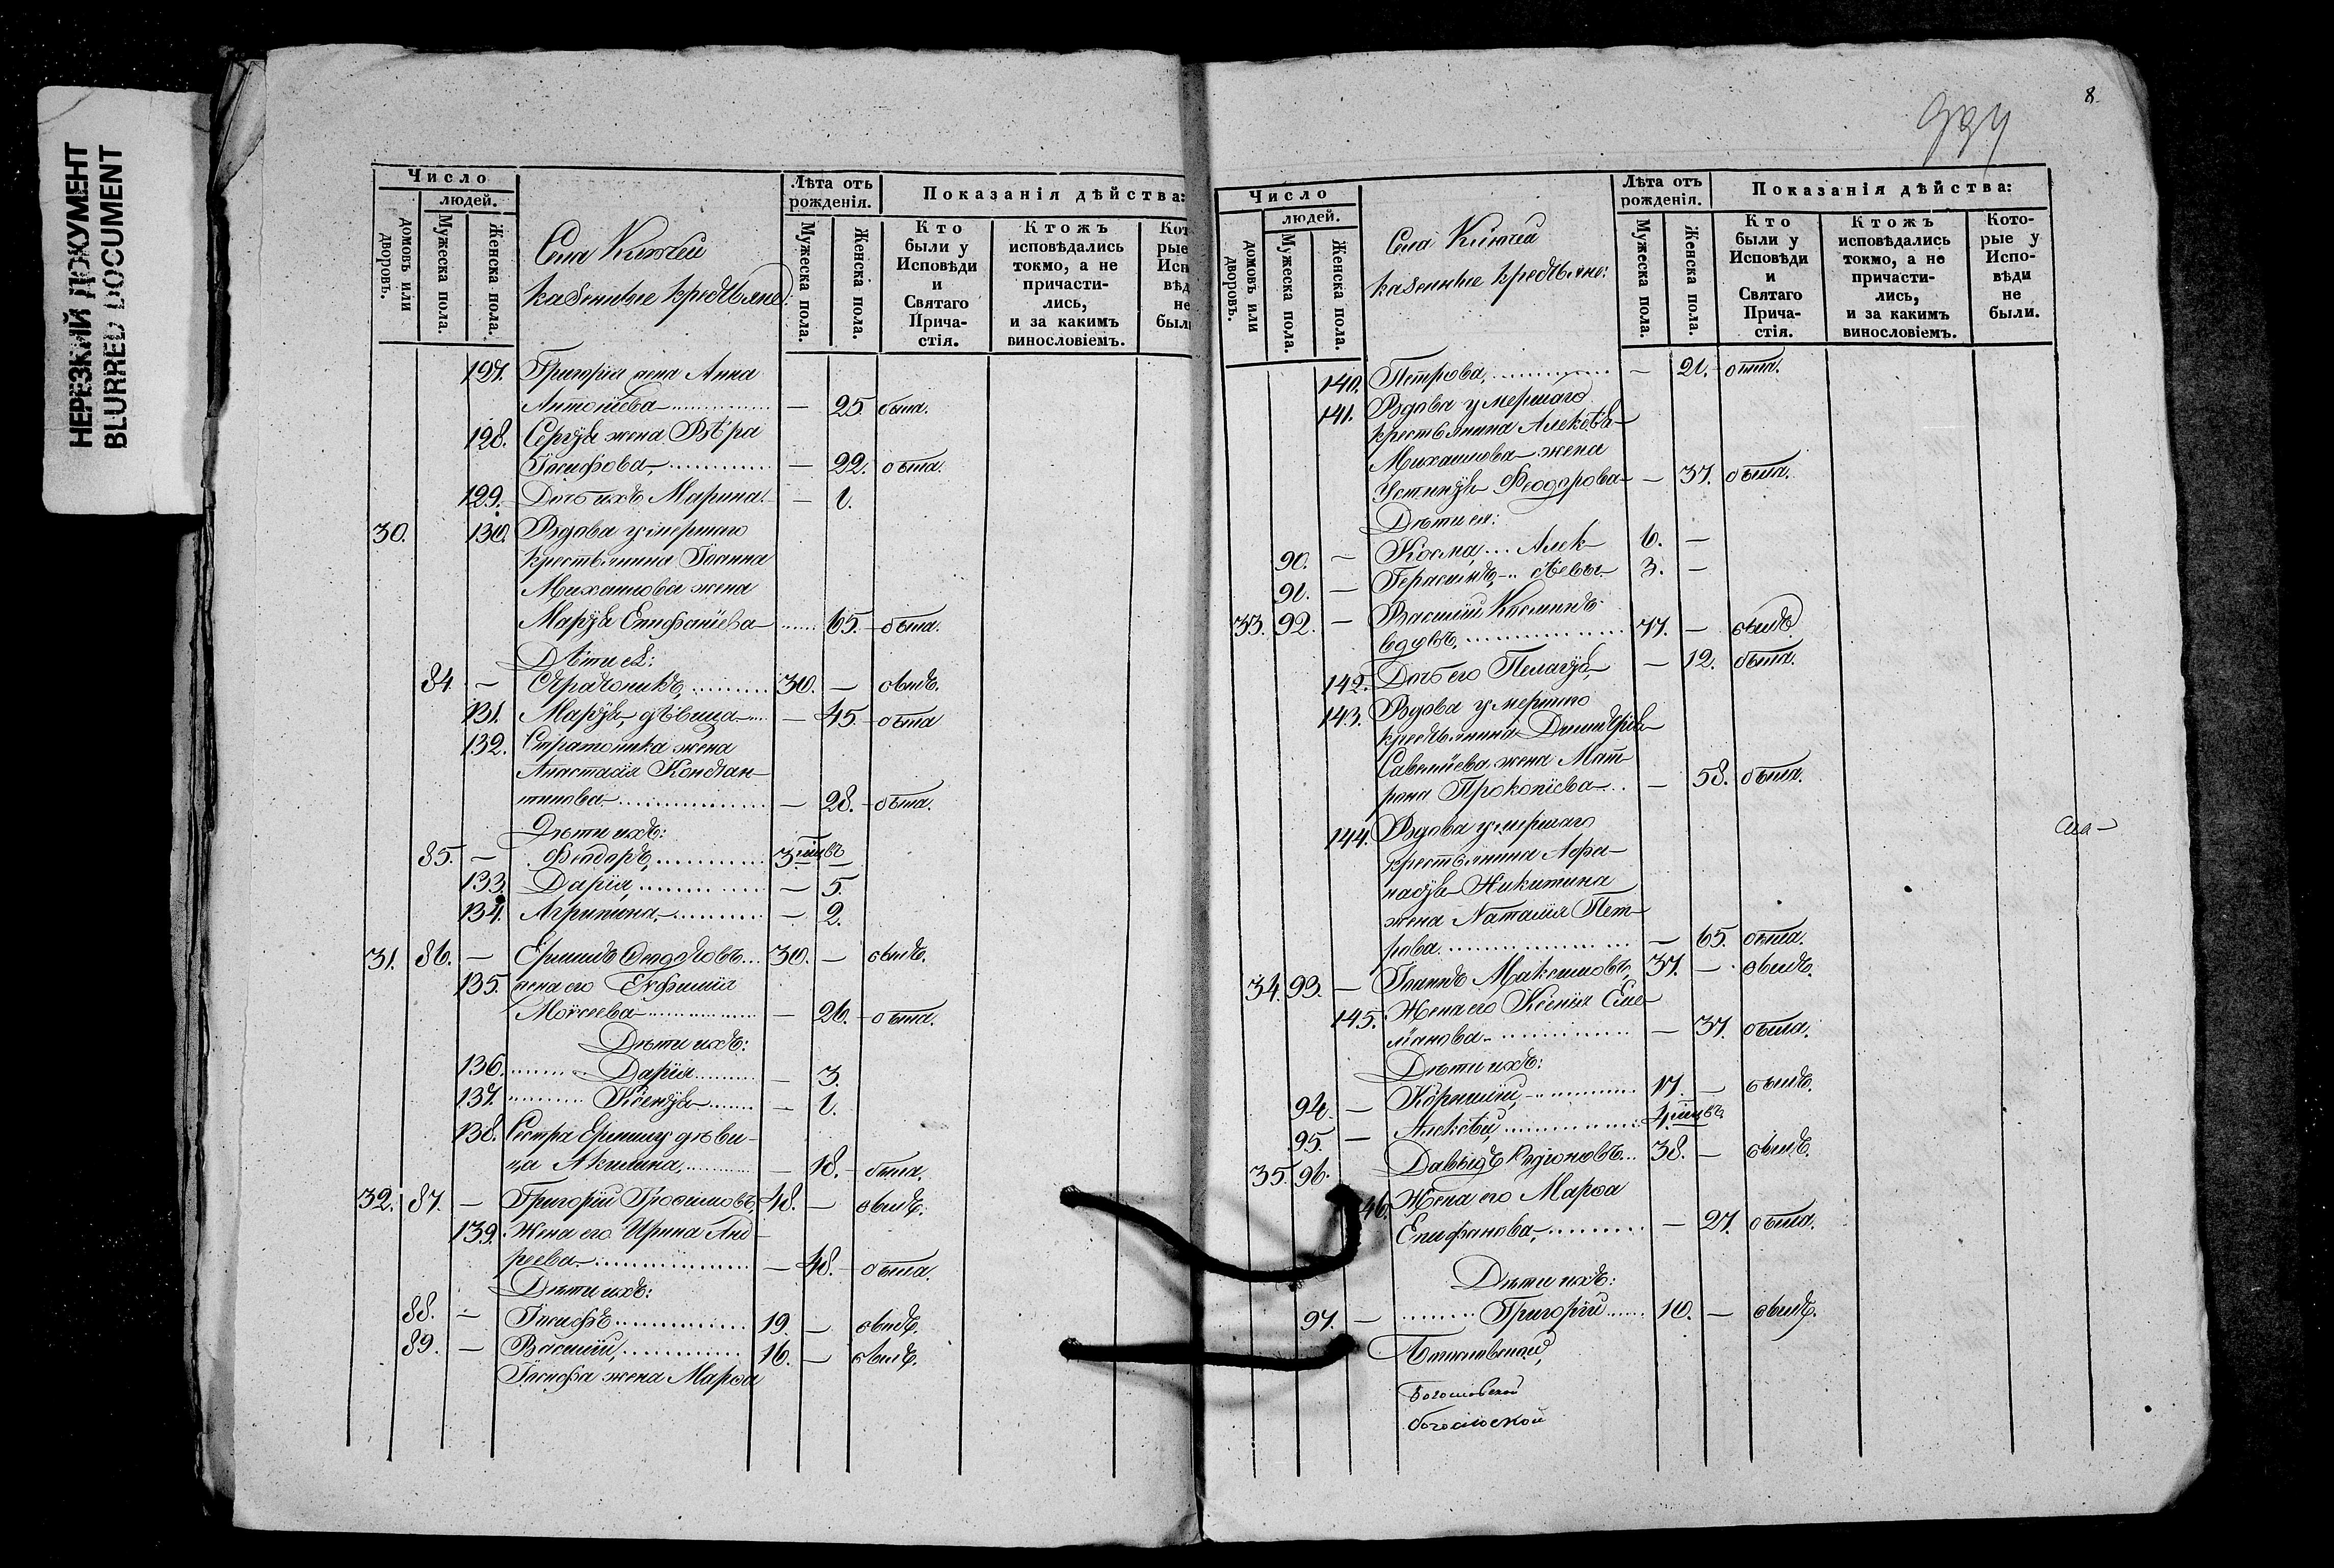 НЕРЕЗКИЙ ДОКУМЕНТ
BLURRED DOCUMENT
Число
людей.
домовъ или дворовъ.
Мужеска пола.
Женска пола.
Села Ключей
казенные крестьяне:
Лѣта отъ рожденія.
Мужеска пола.
Женска пола.
Показанія дѣйства:
Кто были у Исповѣди и Святаго Прича-стія.
Ктожъ исповѣдались токмо, а не причасти-лись, и за какимъ винословіемъ.
127. Григорія жена Анна
Антоніева — 25. была.
128. Сергѣя жена Вѣра
Іосифова, — 22. была.
129. Дочь ихъ Марина. — 1.
30. 130. Вдова умершаго
крестьянина Іоанна
Михаилова жена
Марѳа Епифаніева 65. была.
Дѣти ея:
84 — Стратоникъ, 30. — былъ.
131. Марѳа, дѣвица — 45 была
132. Стратоника жена
Анастасія Констан-
тинова — 28. была.
Дѣти ихъ:
85. — Феодоръ, 3 мцвъ —
133. Дарія, — 5.
134. Агрипина, — 2.
31. 86. — Ермилъ Ѳедотовъ 30. — былъ.
135. жена его Евфимія
Моѵсеева — 26. была.
Дѣти ихъ:
136. Дарія — 3.
137. Ксенія — 1.
138. Сестра Ермилу дѣви-
ца Акилина, — 18. была.
32. 87. — Григорій Трофимовъ, 48. — былъ.
139. Жена его Ирина Анд-
реева — 48. была.
Дѣти ихъ:
88. — Іосифъ 19. — былъ.
89. — Василій, 16. — былъ.
Іосифа жена Марѳа
8.
994
Число
людей.
домовъ или дворовъ.
Мужеска пола.
Женска пола.
Села Ключей
казенные крестьяне:
Лѣта отъ рожденія.
Мужеска пола.
Женска пола.
Показанія дѣйства:
Кто были у Исповѣди и Святаго Прича-стія.
Ктожъ исповѣдались токмо, а не причасти-лись, и за какимъ винословіемъ.
Кото-рые у Испо-вѣди не были.
140. Петрова, — 21. была.
141. Вдова умершаго
крестьянина Алексѣя
Михаилова жена
Устинія Феодорова — 37. была.
Дѣти ея:
90. — Косма, Алек- 6. —
91. — Герасимъ, сѣевы 3. —
33. 92. — Василій Косминъ
вдовъ, 77. — былъ
142. Дочь его Пелагія, — 12. была.
143. Вдова умершаго
крестьянина Димитрія
Савелиева жена Мат-
рона Прокопіева — 58. была.
144. Вдова умершаго
крестьянина Афа-
насія Никитина
жена Наталія Пет-
рова. — 65. была.
34. 93. — Іоаннъ Максимовъ, 37. — былъ.
145. Жена его Ксенія Еме-
ліанова — 37. была.
Дѣти ихъ:
94. — Корнилій, 17. — былъ.
95. — Алексѣй, 4 мцвъ
35. 96. Давыдъ Родіоновъ 38. — былъ.
146. Жена его Марѳа
Епифанова, — 27. была.
Дѣти ихъ:
97. — Григорій 10. — былъ.